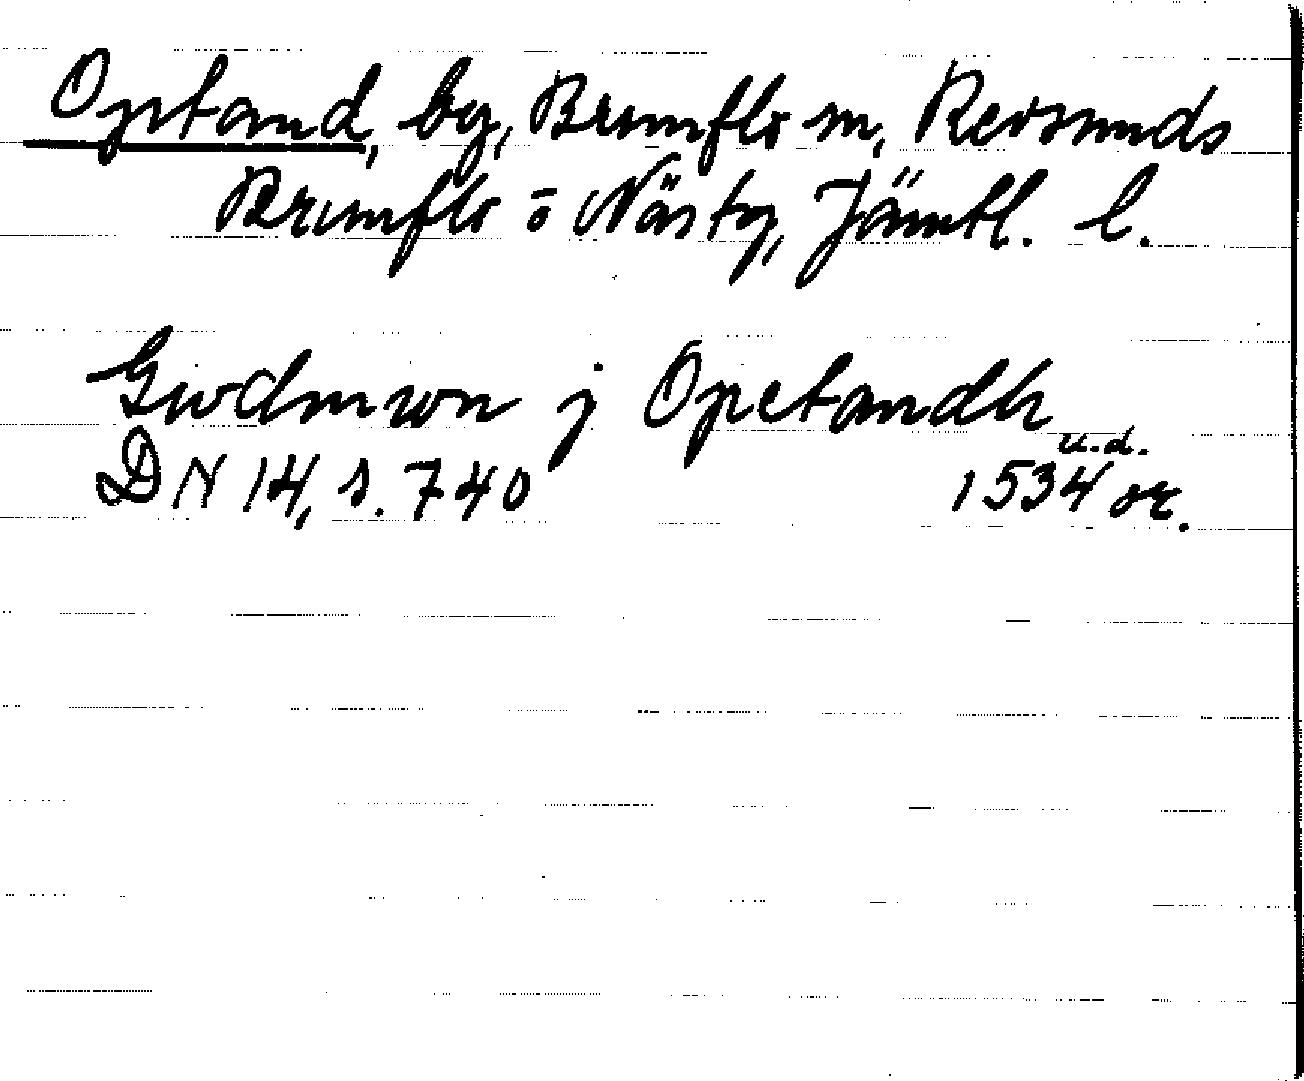 Optand, by, Brunflo sn, Revsunds
Brunflo o Näs tg, Jämtl. l.
Gwdmwn j Opetandh
u.d.
DN 14, s. 740 1534 or.